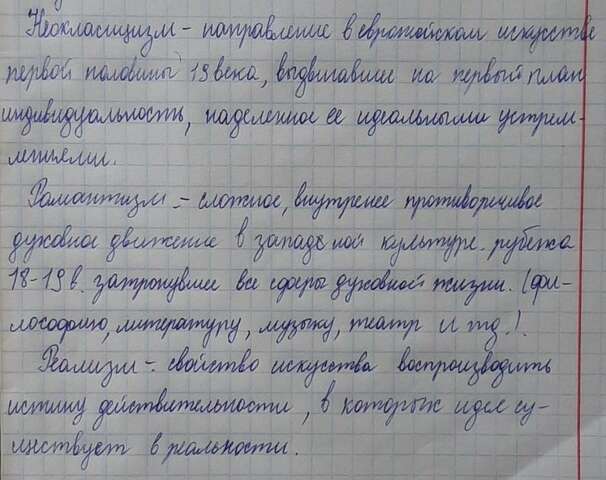 Неокласицизм - направление в европейском искусстве
первой половины 19 века, выдвигавшие на первый план
индивидуальность, наделенное ее идеальными устрем-
лениями.
Романтизм - сложное, внутренее противоречивое
духовное движение в западной культуре рубежа
18-19 в. затронувшее все сферы духовной жизни. (фи-
лософию, литературу, музыку, театр и тд.).
Реализм - свойство искусства воспроизводить
истину действительности, в которых идее су-
ществует в реальности.